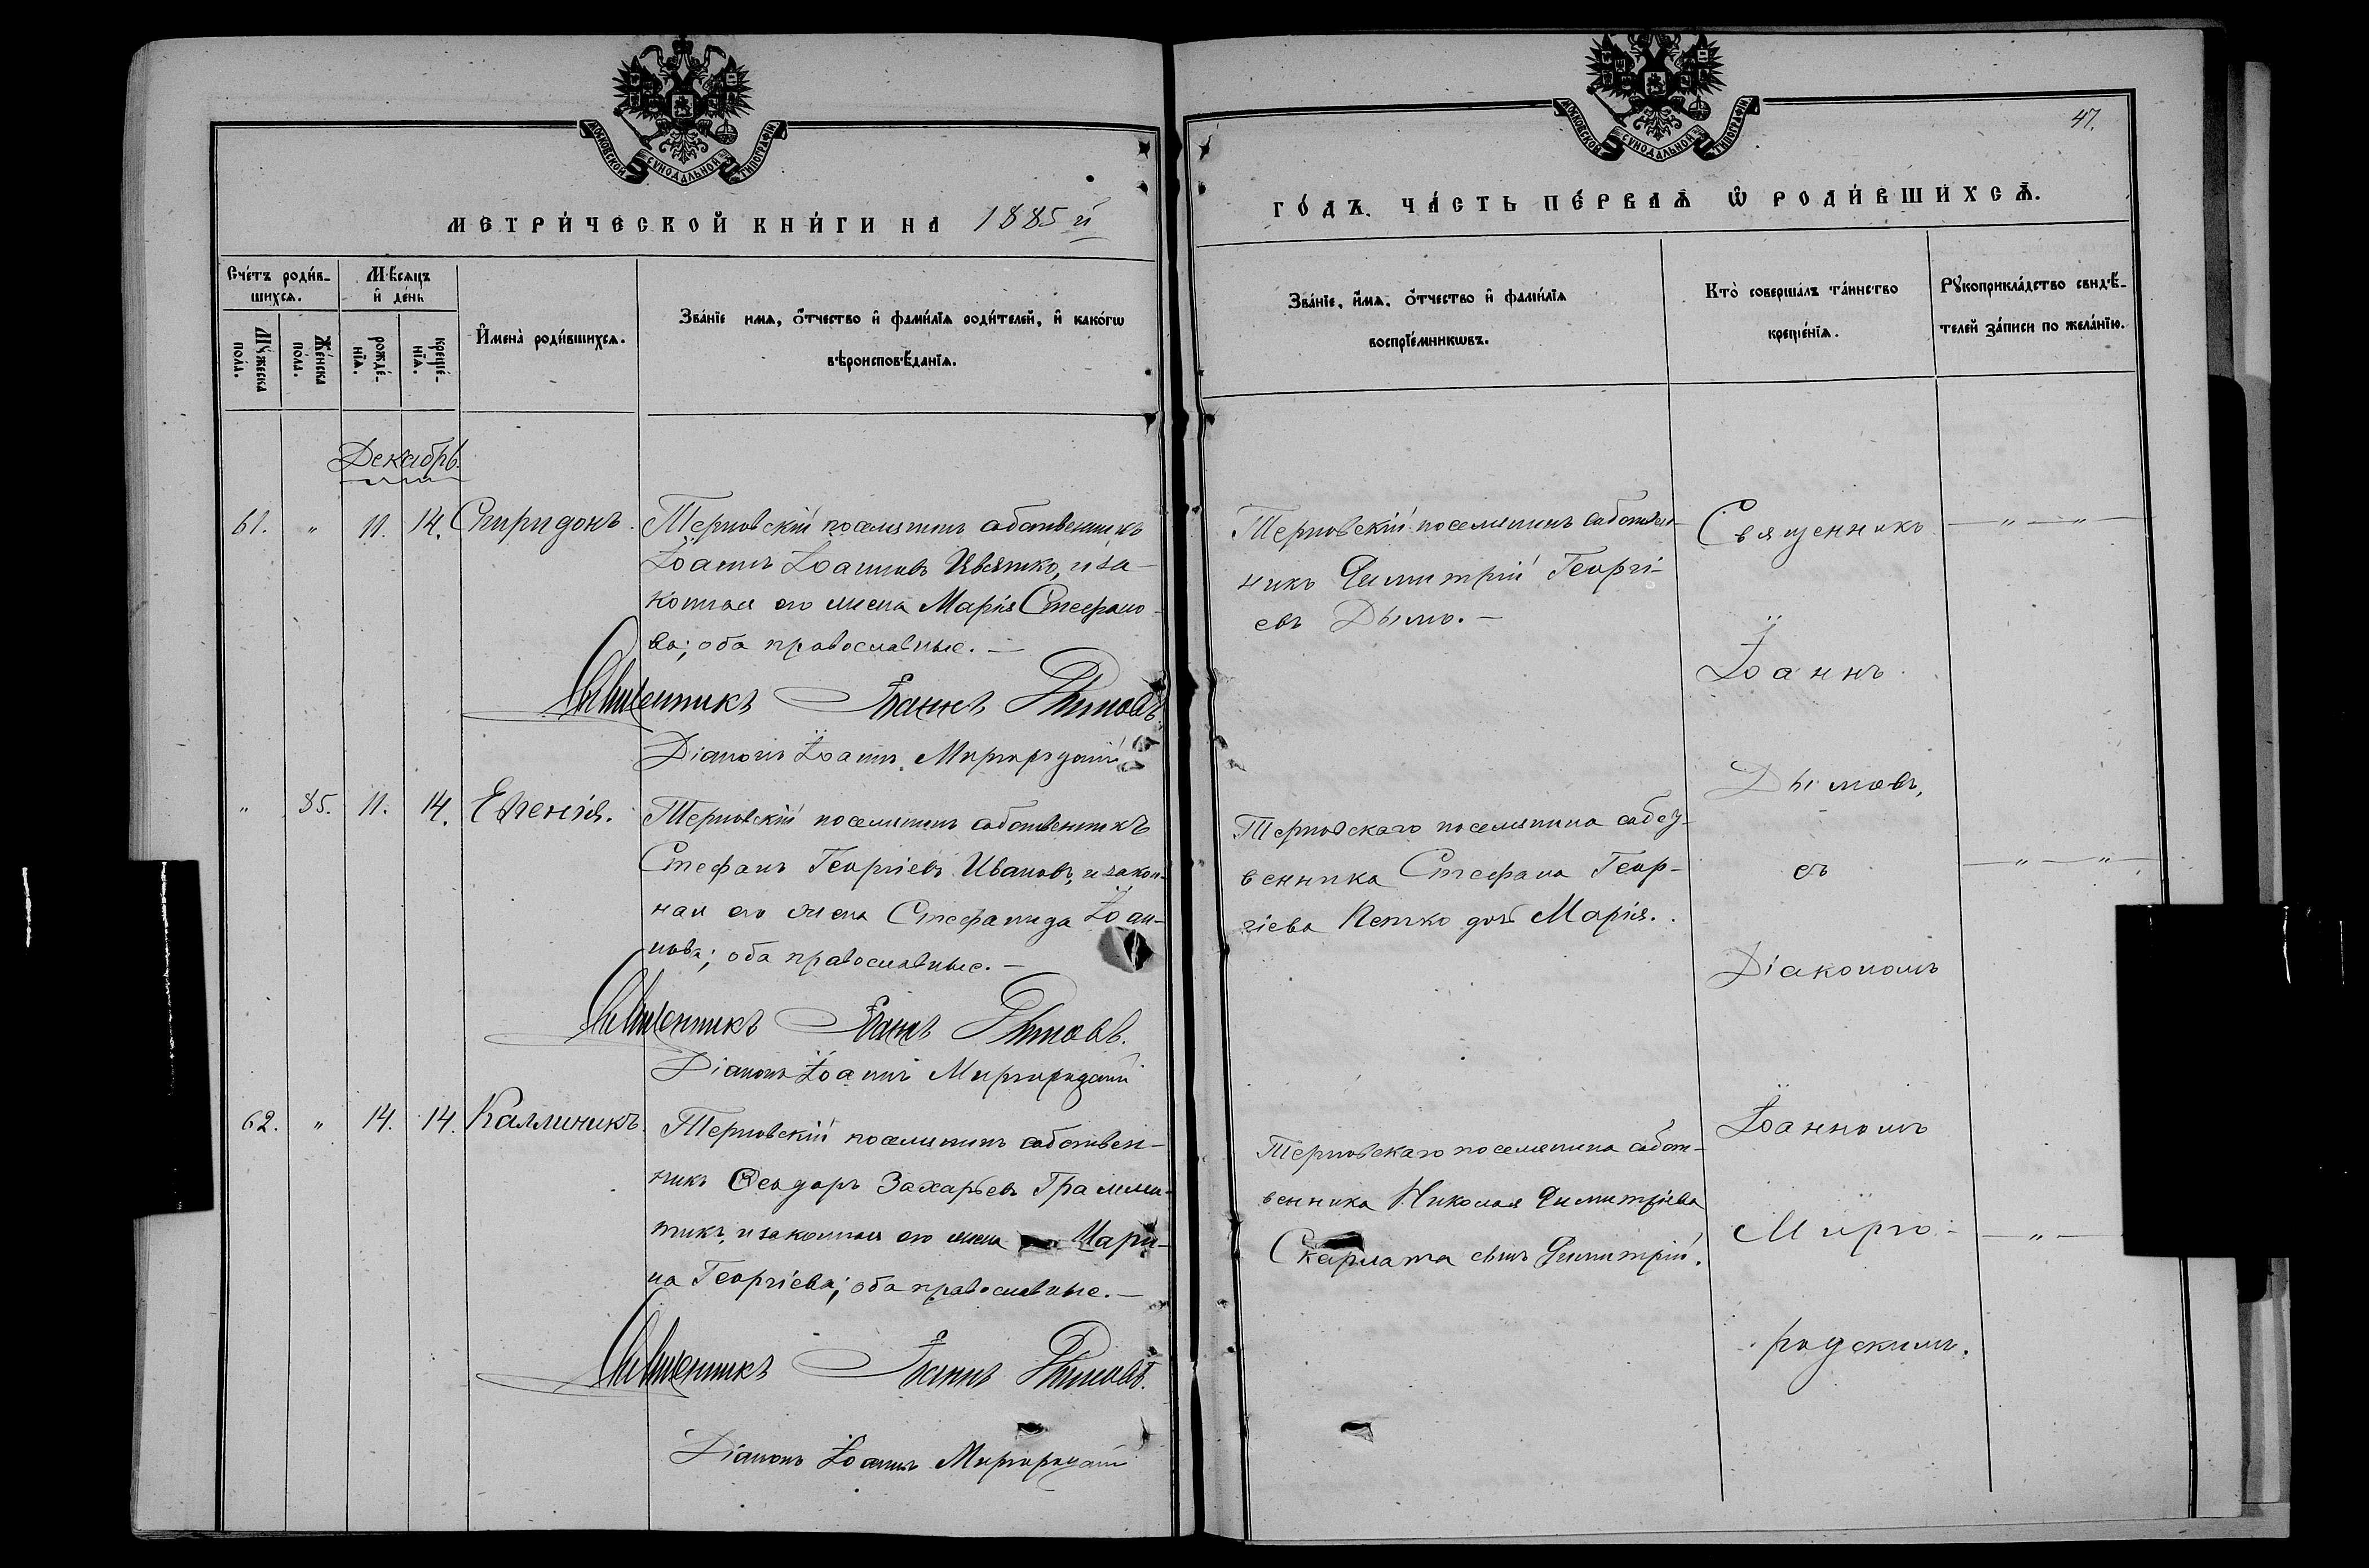 МОСКОВСКОЙ СѴНОДАЛЬНОЙ ТИПОГРАФІИ
МЕТРИ́ЧЕСКОЙ КНИ́ГИ НА 1885 й
Сче́тъ роди́в-
шихся.
Мѣ́сяцъ
и҆ де́нь
Мꙋ́жеска
по́ла.
Же́нска
по́ла.
рожде́-
нїѧ.
креще́-
нїѧ.
И҆мена̀ роди́вшихся.
Зва́нїе имѧ, ѻ҆́тчество и҆ фами́лїѧ роди́телей, и҆ како́гѡ
вѣроисповѣ́данїѧ.
Декабрь
61. " 11. 14. Спиридонъ.
Терновскій поселянинъ собственникъ
Іоаннъ Іоанновъ Ивсятко, и за-
конная его жена Марія Стефано-
ва; оба православные. —
Священникъ Іоаннъ Дымовъ
Діаконъ Іоаннъ Миргородскій
" 85. 11. 14. Евгенія.
Терновскій поселянинъ собственникъ
Стефанъ Георгіевъ Ивановъ, и закон-
ная его жена Стефанида Іоан-
нова; оба православные. —
Священникъ Іоаннъ Дымовъ.
Діаконъ Іоаннъ Миргородскій
62. " 14. 14. Каллиникъ.
Терновскій поселянинъ собствен-
никъ Ѳеодоръ Захарьевъ Грамма-
тикъ, и законная его жена Мари-
на Георгіева; оба православные. —
Священникъ Іоаннъ Дымовъ.
Діаконъ Іоаннъ Миргородскій
МОСКОВСКОЙ СѴНОДАЛЬНОЙ ТИПОГРАФІИ
47.
ГО́ДЪ. ЧА́СТЬ ПЕ́РВАЯ Ѡ҆ РОДИ́ВШИХСЯ.
Зва́нїе, и҆́мѧ, ѻ҆́тчество и҆ фами́лїѧ
воспрїе́мникѡвъ.
Кто̀ соверша́лъ та́инство
креще́нїѧ.
Рꙋкоприкла́дство свидѣ́-
телей за́писи по жела́нїю.
Терновскій поселянинъ собствен-
никъ Димитрій Георгі-
евъ Дымо. —
Терновскаго поселянина собст-
венника Стефана Геор-
гіева Петко дочь Марія.
Терновскаго поселянина собст-
венника Николая Димитріева
Скарлата сынъ Димитрій.
Священникъ
Іоаннъ
Дымовъ,
съ
Діакономъ
Іоанномъ
Мирго-
родскимъ.
— " — " —
— " — " —
— " —